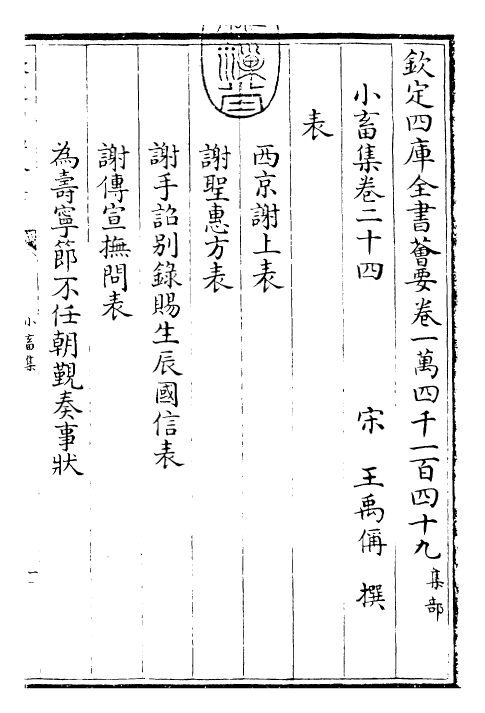 欽定四庫全書薈要卷一萬四千一百四十九集部
小畜集卷二十四　　宋　王禹偁　撰
表
西京謝上表
謝聖惠方表
謝手詔別錄賜生辰國信表
謝傳宣撫問表
為壽寧節不任朝覲奏事狀
小畜集
一